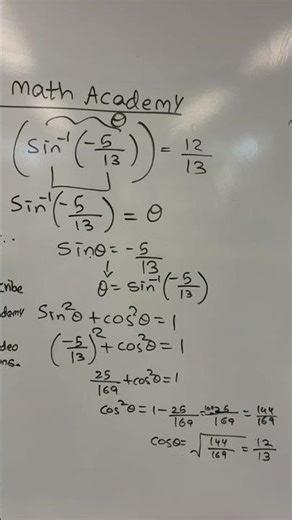 Math Academy
θ
(sin⁻¹(-5/13)) = 12/13
sin⁻¹(-5/13) = θ
sinθ = -5/13
↓
θ = sin⁻¹(-5/13)
sin²θ + cos²θ = 1
(-5/13)² + cos²θ = 1
25/169 + cos²θ = 1
cos²θ = 1 - 25/169 = 169-25/169 = 144/169
cosθ = √144/169 = 12/13